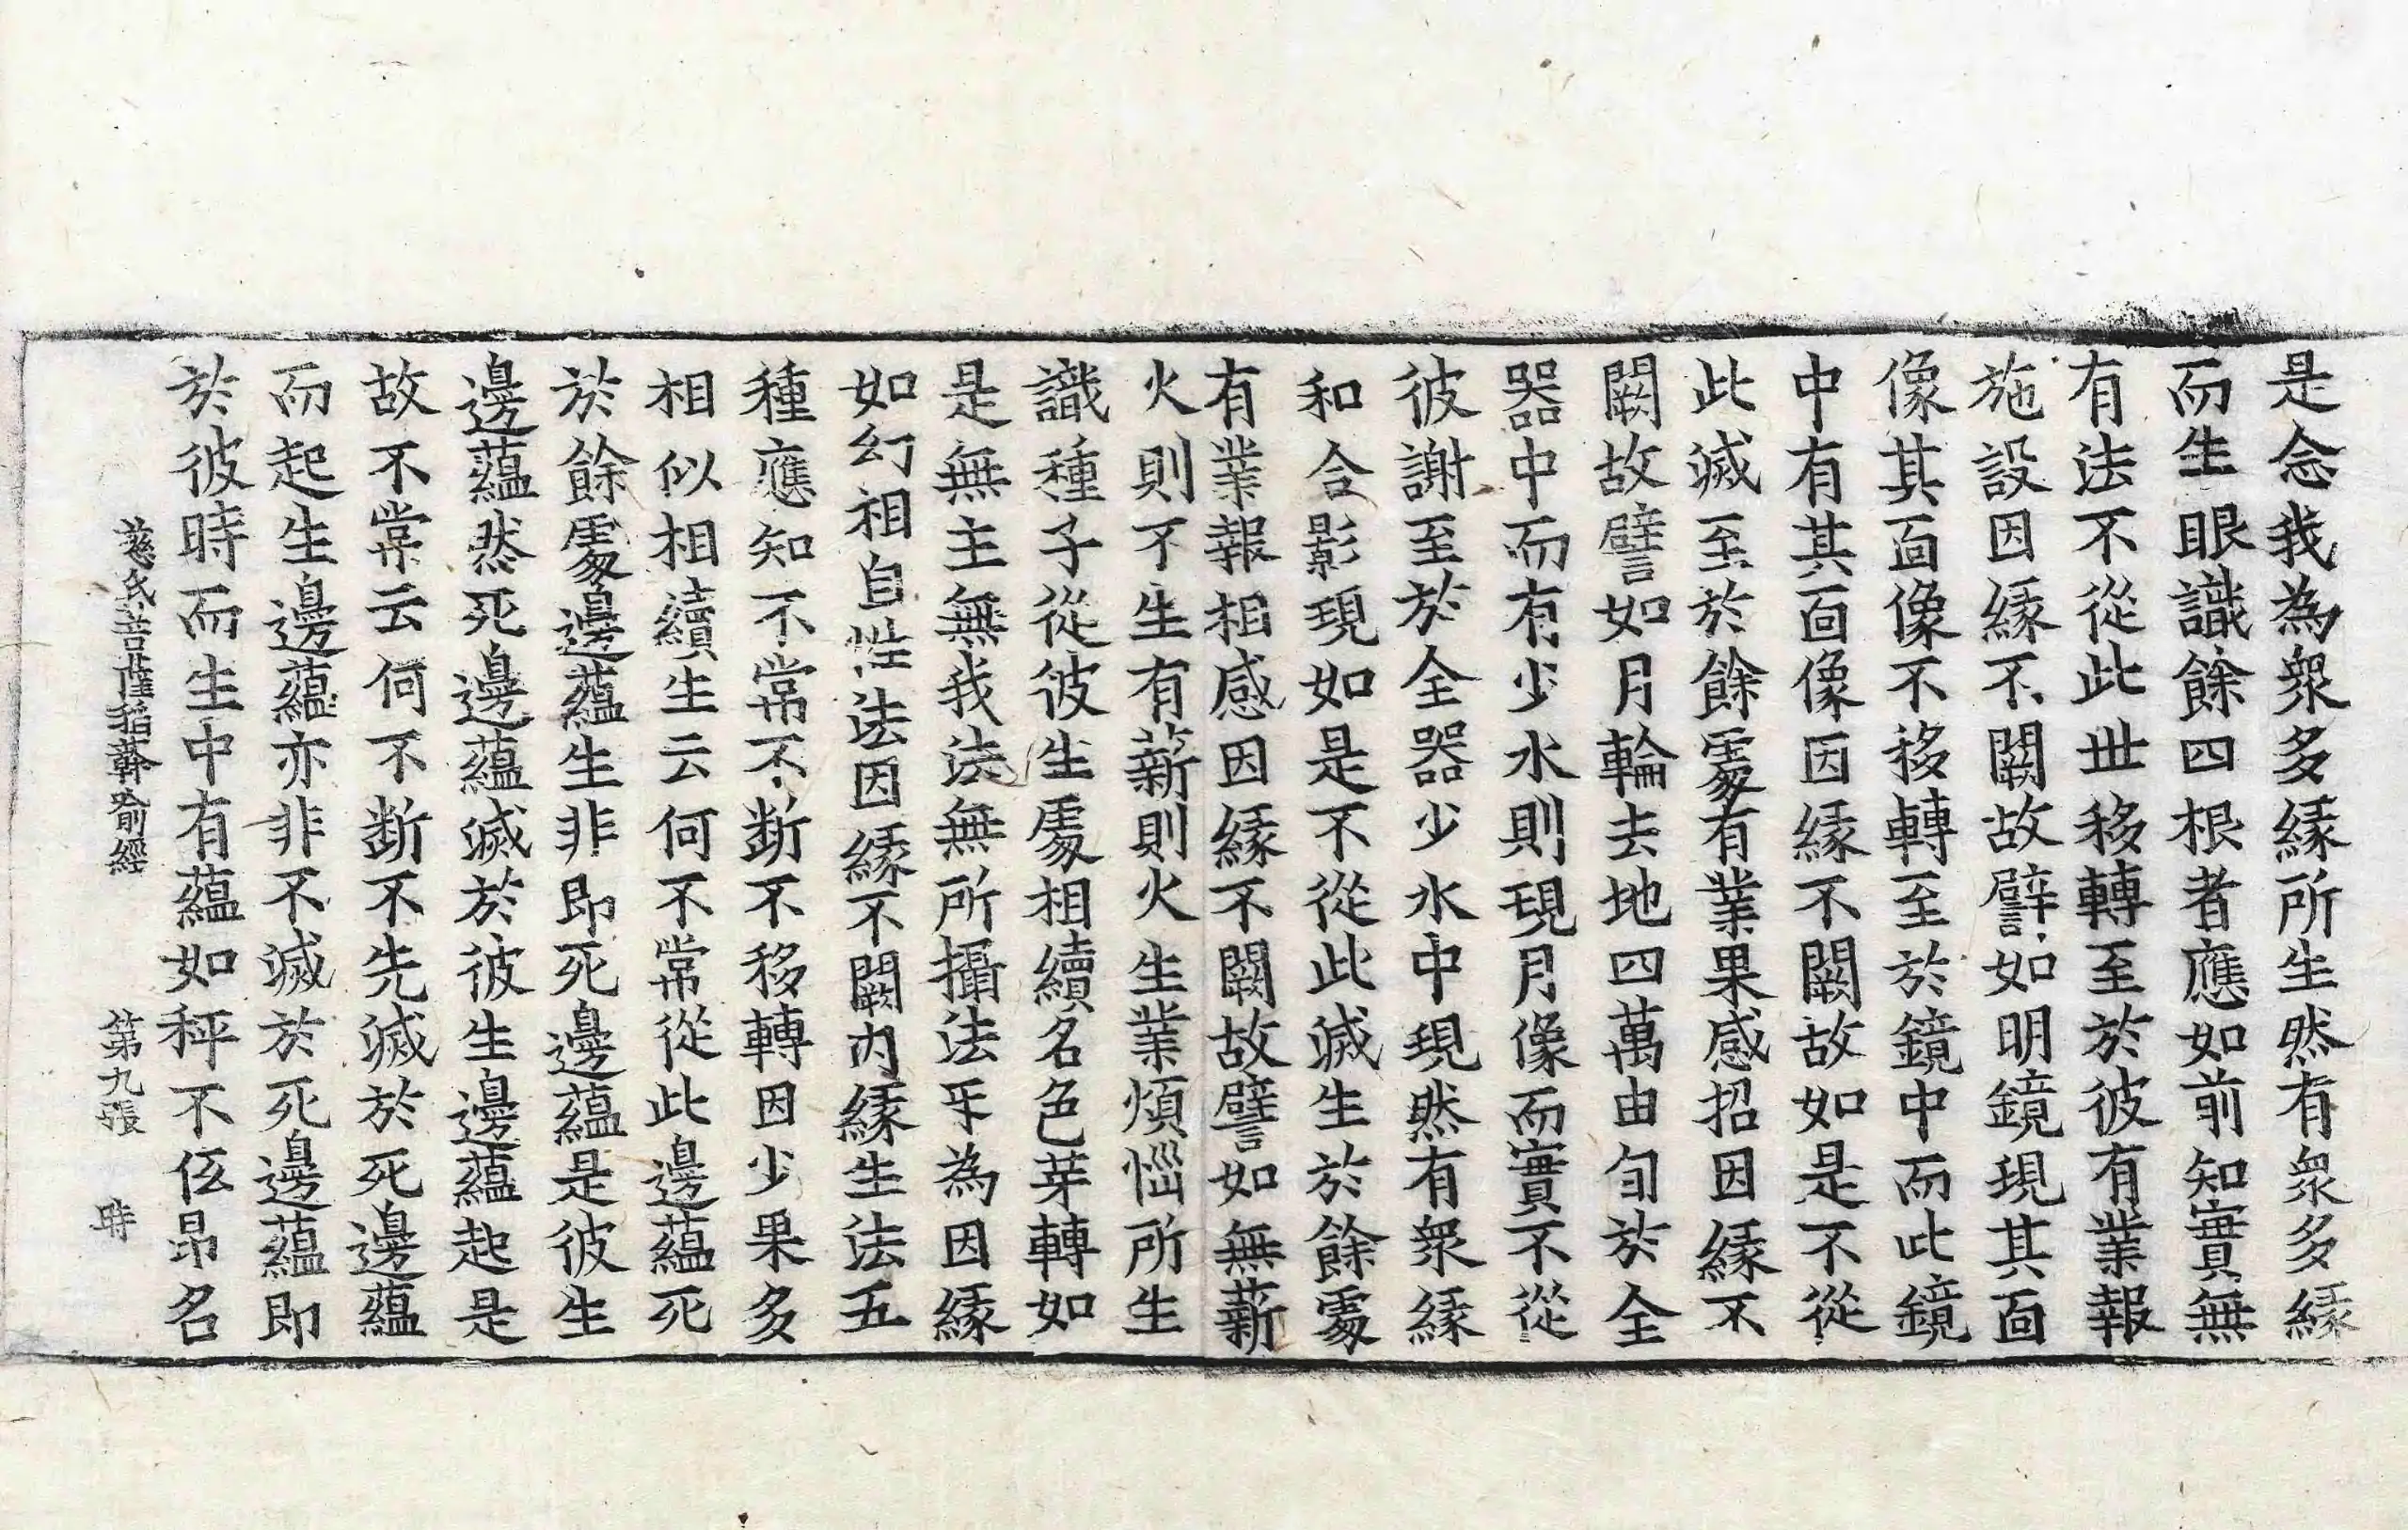 是念我為衆多緣所生然有衆多緣
而生眼識餘四根者應如前知實無
有法不從此世移轉至於彼有業報
施設因緣不闕故譬如明鏡現其面
像其面像不移轉至於鏡中而此鏡
中有其面像因緣不闕故如是不從
此滅至於餘處有業果感招因緣不
闕故譬如月輪去地四萬由旬於全
器中而有少水則現月像而實不從
彼謝至於全器少水中現然有衆緣
和合影現如是不從此滅生於餘處
有業報相感因緣不闕故譬如無薪
火則不生有薪則火生業煩惱所生
識種子從彼生處相續名色芽轉如
是無主無我法無所攝法互為因緣
如幻相自性法因緣不闕內緣生法五
種應知不常不斷不移轉因少果多
相似相續生云何不常從此邊蘊死
於餘處邊蘊生非即死邊蘊是彼生
邊蘊然死邊蘊滅於彼生邊蘊起是
故不常云何不斷不先滅於死邊蘊
而起生邊蘊亦非不滅於死邊蘊即
於彼時而生中有蘊如秤不低昂名
慈氏菩薩稻𦼮喻經　第九張　時